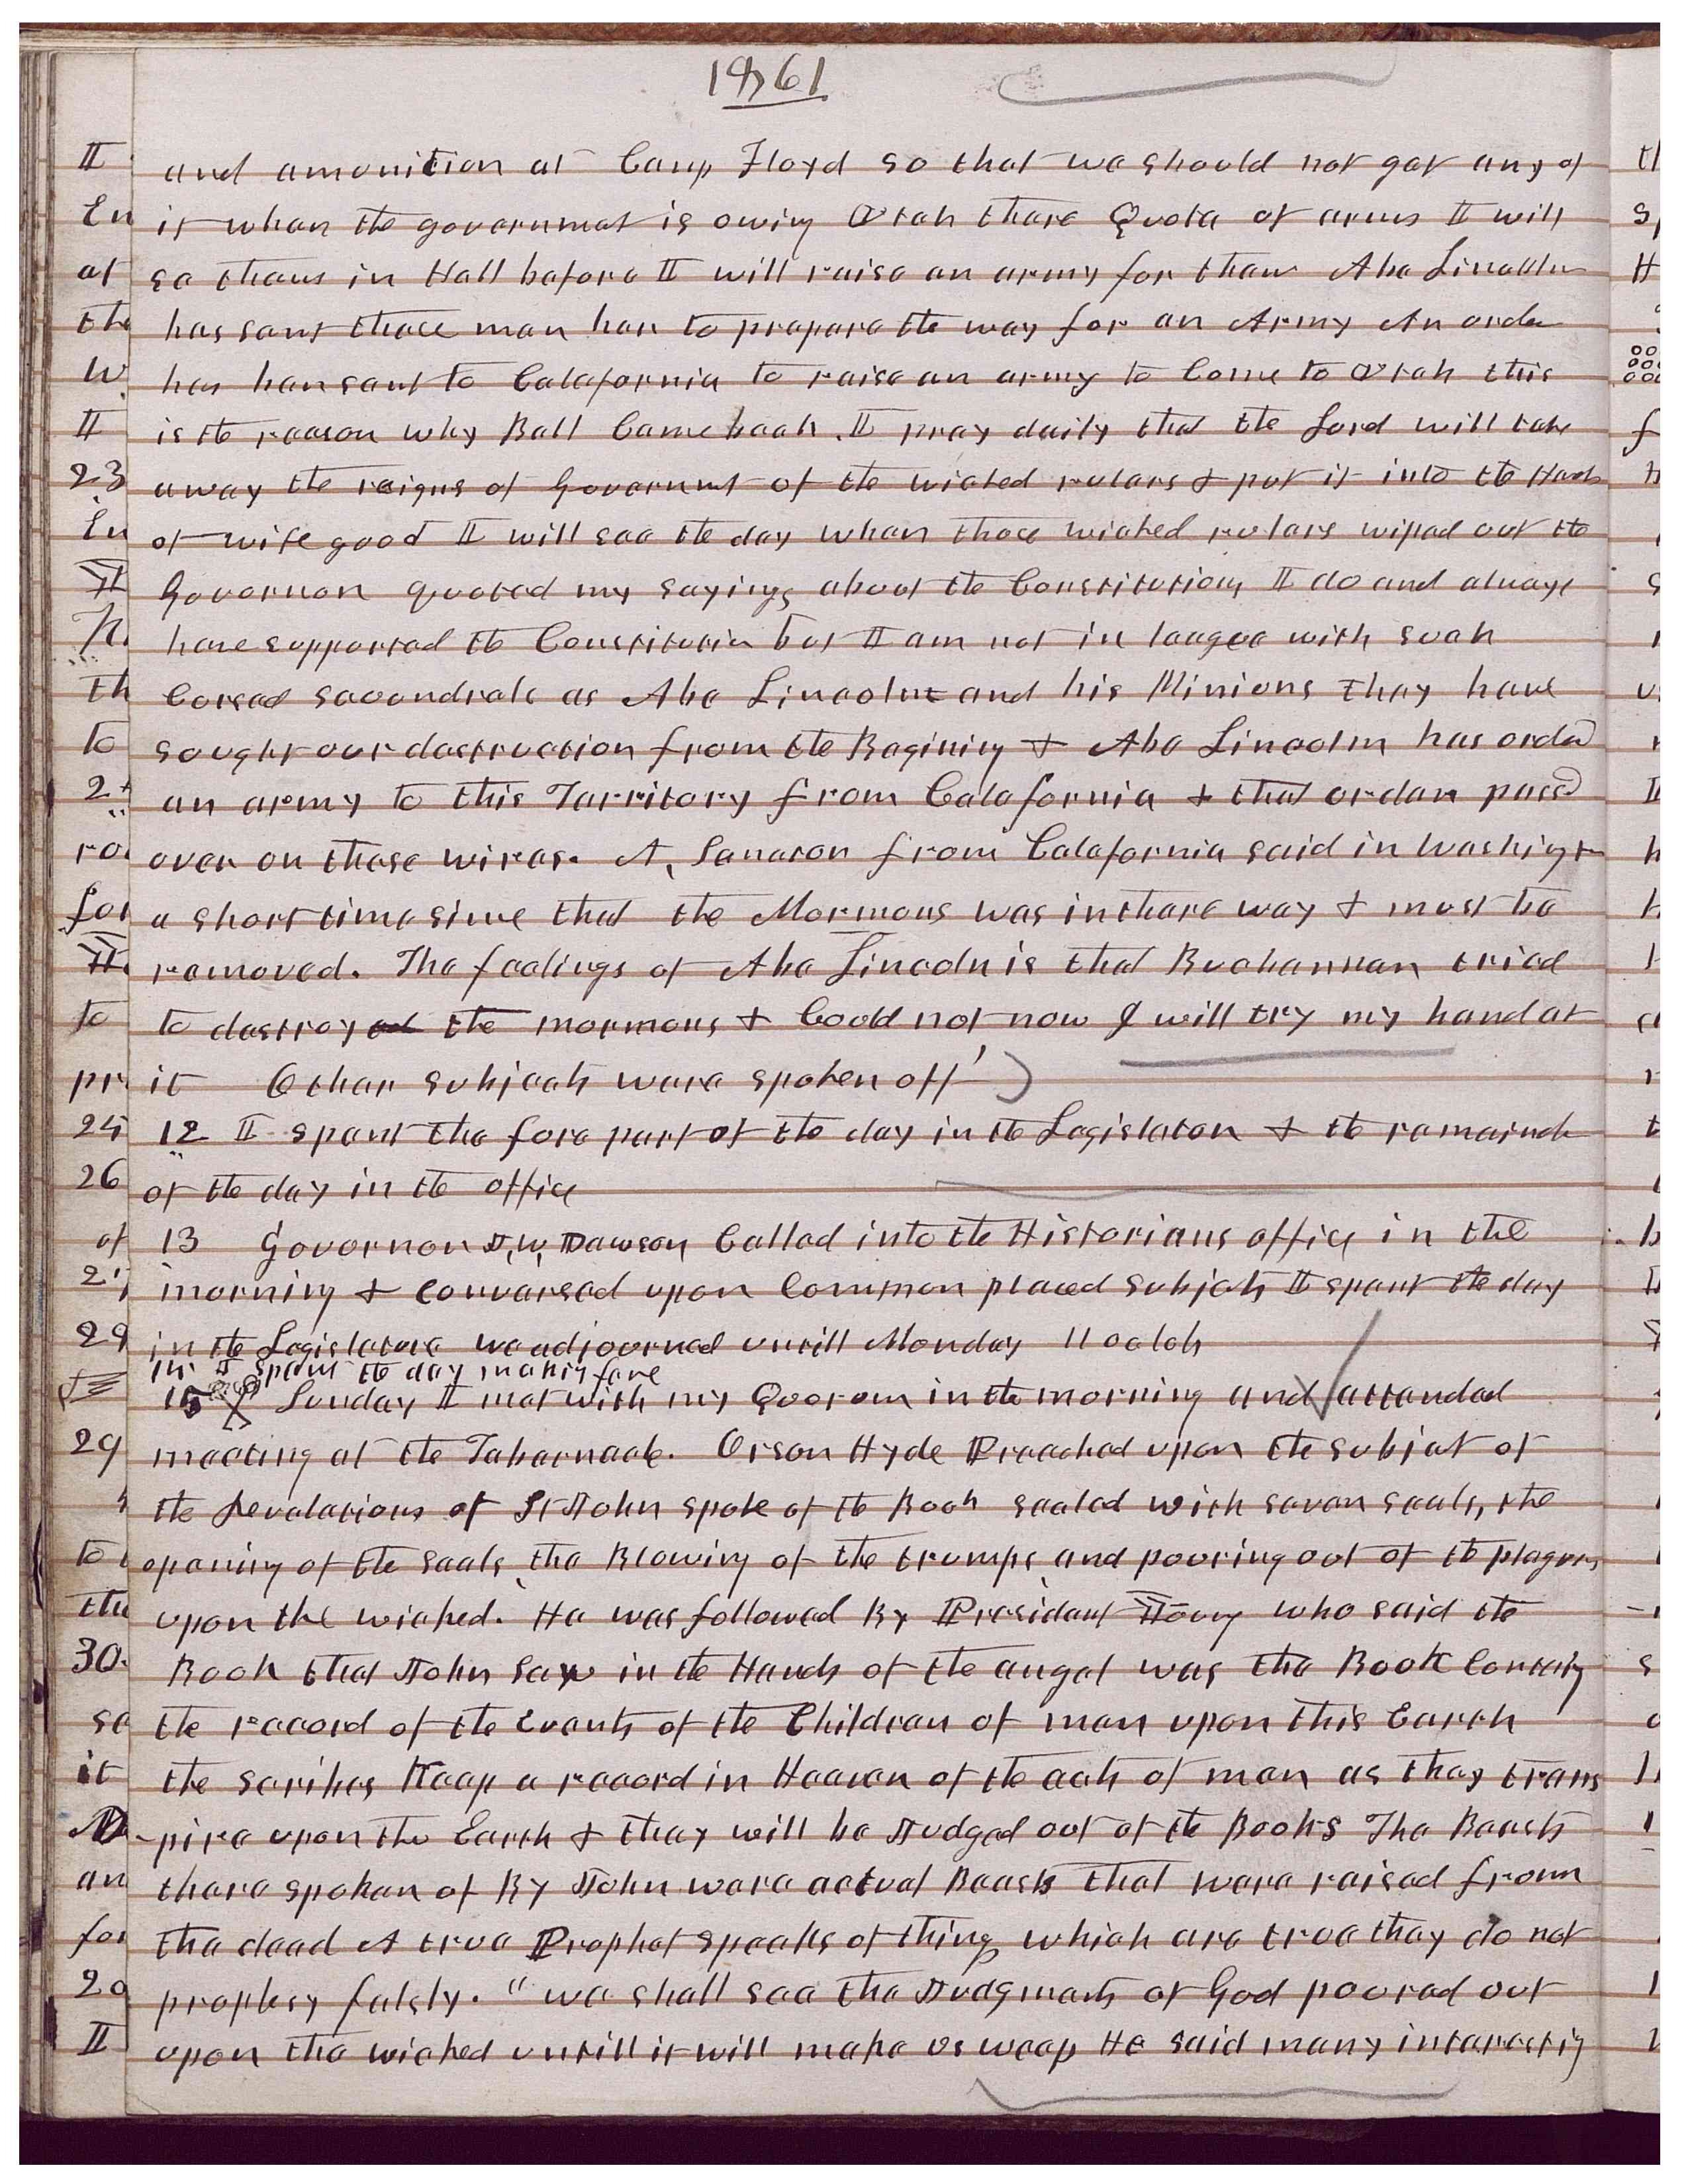 1861
and amunition at Camp Floyd so that we should not get any of
it when the governmet is owing Utah there Quota of arms I will
se them in Hell before I will raise an army for them Abe Lincoln
has sent these men her to prepare the way for an Army An order
has ben sent to Calafornia to raise an army to Come to Utah this
is the reason why Ball Came back. I pray daily that the Lord will take
away the reigns of Government of the wicked rulers & put it into the Hands
of wise good I will see the day when those wicked rulers wiped out the
Governor quoted my sayings about the Constitution I do and always
have supported the Constitution but I am not in league with such
Cursed scoundrels as Abe Lincoln and his Minions they have
sought our destruction from the Begining & Abe Lincoln has orded
an army to this Territory from Calafornia & that order passed
over on these wires. A, Senator from Calafornia said in Washington
a short time since that the Mormons was in there way & must be
removed. The feelings of Abe Lincoln is that Buchannan tried
to destroy ed the mormons & Could not now I will try my hand at
it Other subjects were spoken off
12 I spent the fore part of the day in the Legislator & the remainder
of the day in the office
13 Governor J, W, Dawson Called into the Historians office in the
morning & conversed upon Common placed subjets I spent the day
in the Legislature we adjourned untill Monday 11 oclok
14 I spent the day in
15 Sunday I met with my Quorum in the morning and attended
meeting at the Tabernacle. Orson Hyde Preached upon the subjet of
the Revelations of St John spoke of the Book sealed with seven seals, the
opening of the seals, the Blowing of the trumps, and pouring out of the plagues
upon the wicked. He was followed By President Young who said the
Book that John saw in the Hands of the angel was the Book Containg
the record of the Events of the Children of men upon this Earth
the scribes Keep a record in Heaven of the acts of men as they trans
-pire upon the Earth & they will be Judged out of the Books The Beasts
there spoken of By John were actual Beasts that were raised from
the dead A true Prophet speaks of things which are true they do not
prophesy falsly. "we shall see the Judgments of God poured out
upon the wicked untill it will make us weep He said many interestig